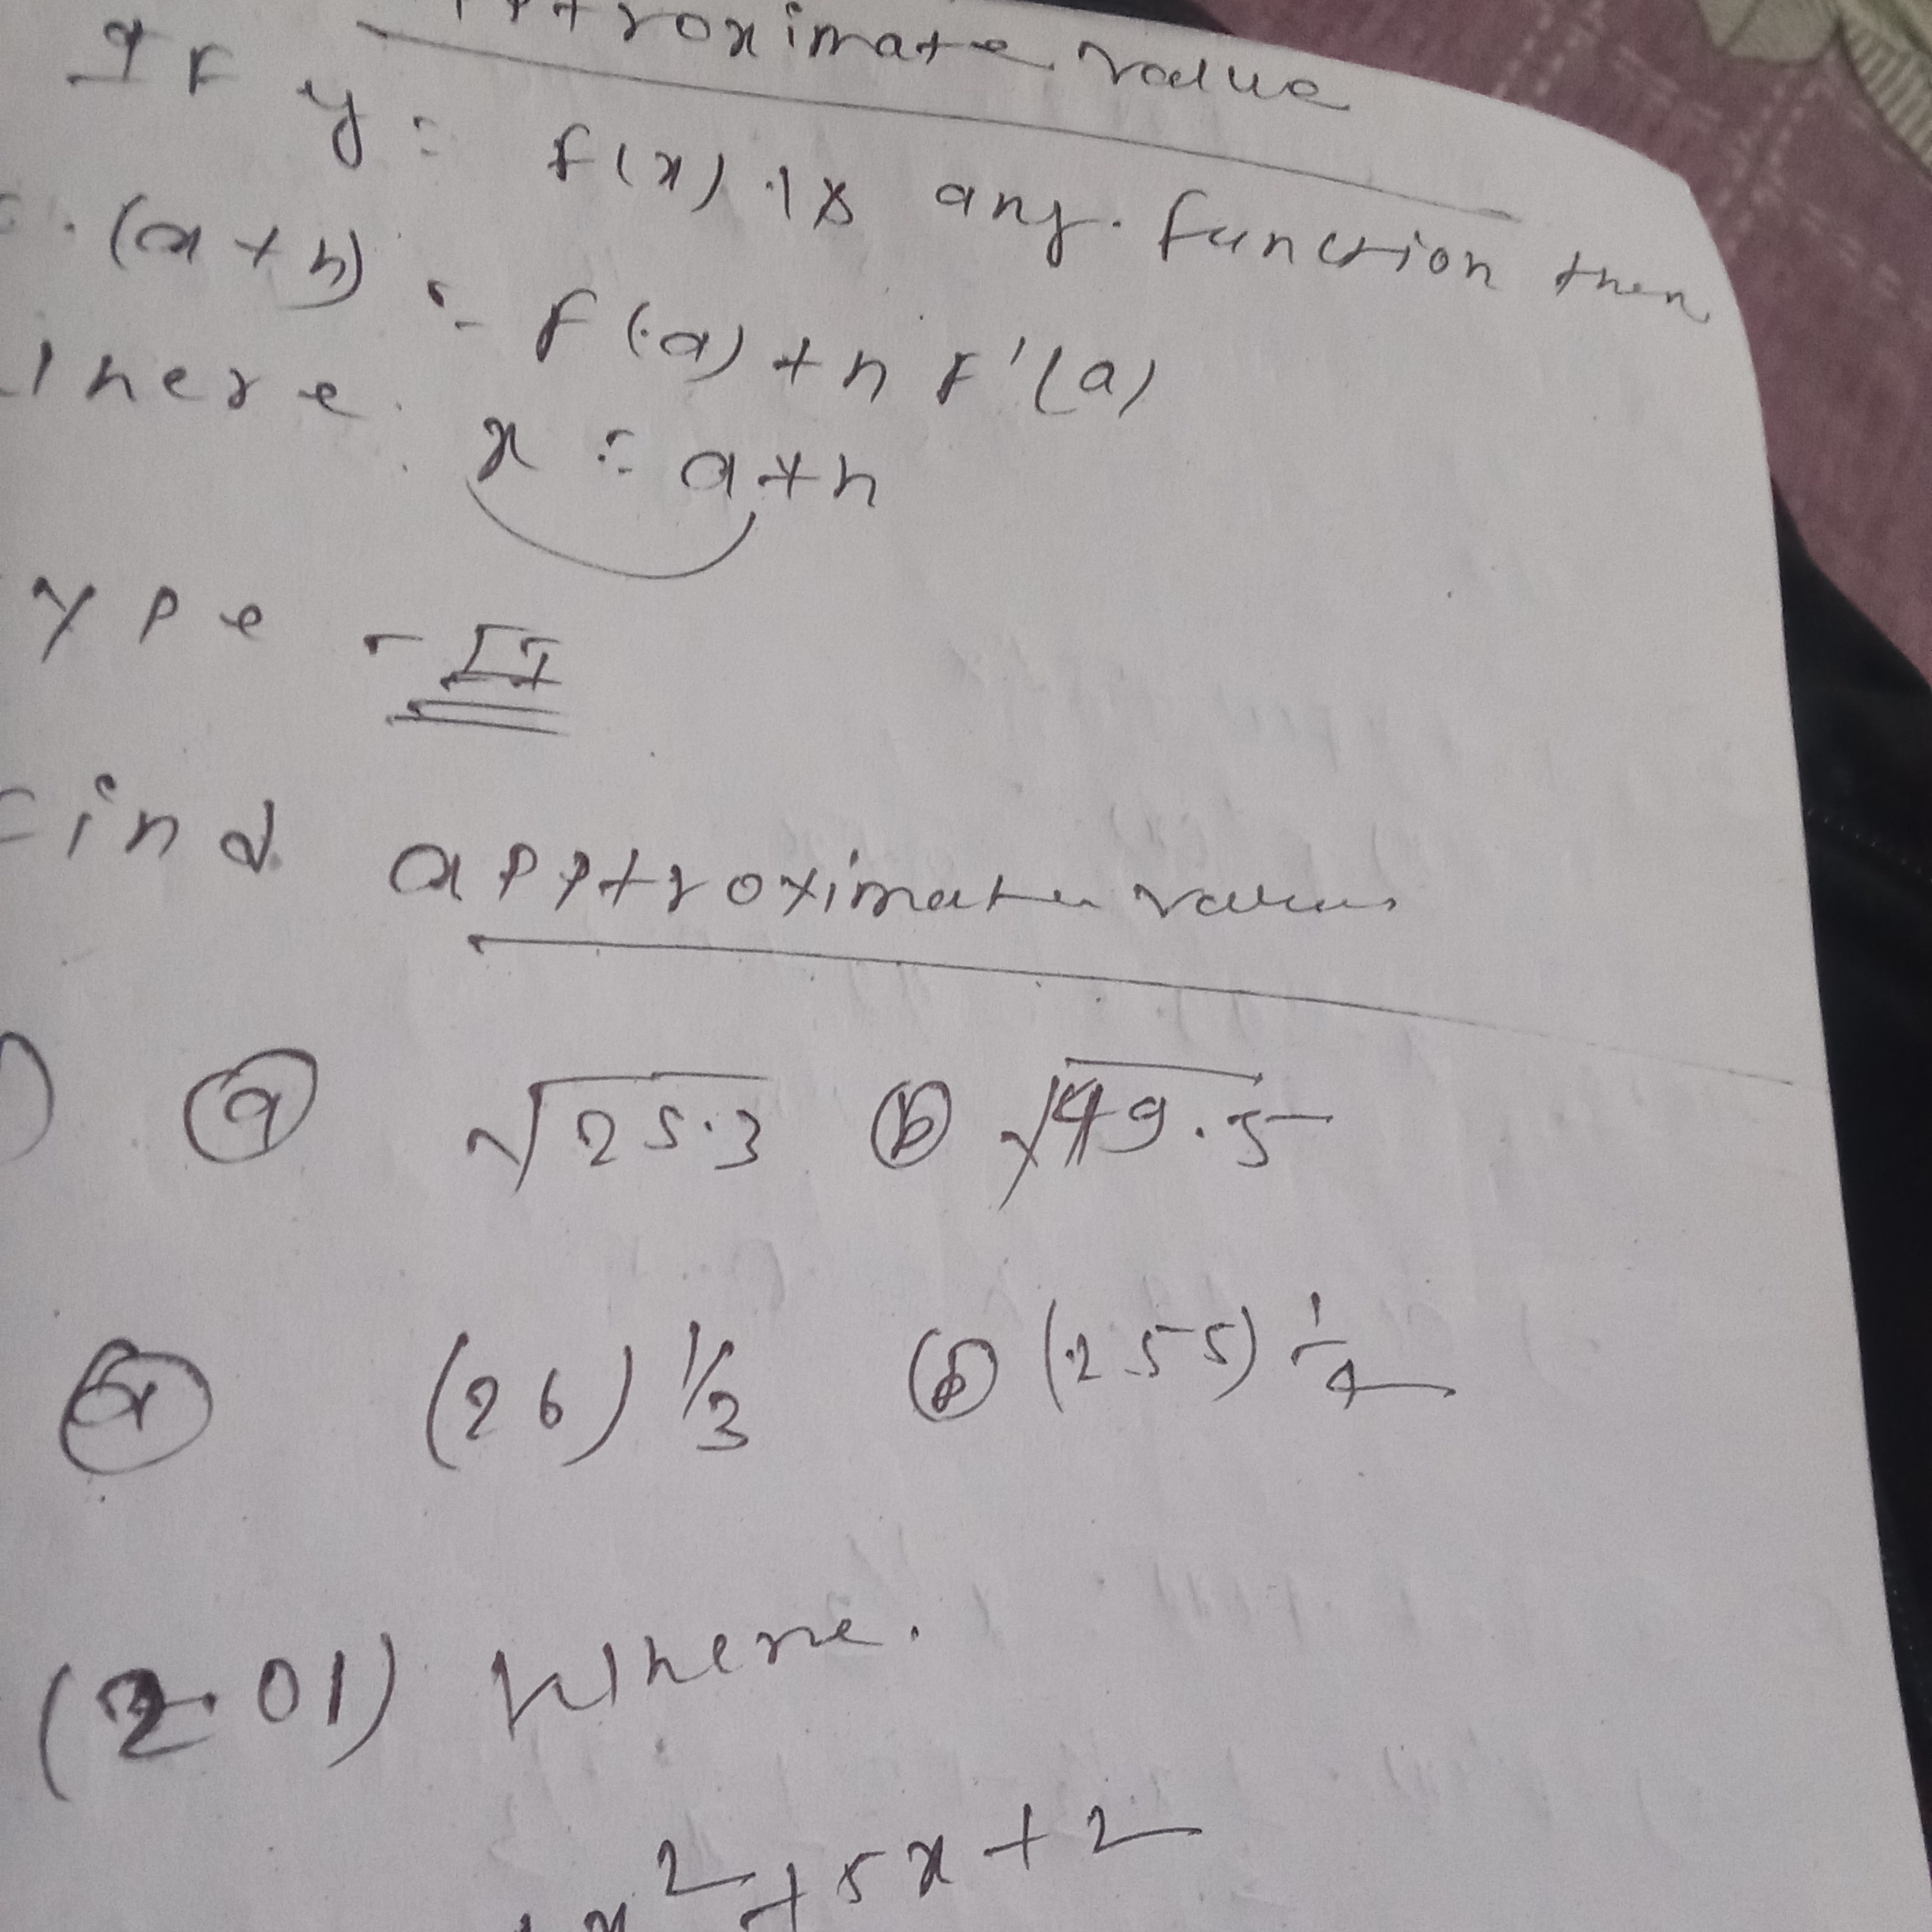 pproximate value
If y = f(x) is any function then
(a + h) = f(a) + h f'(a)
here x = a + h
ype - II
Find approximate values
(a) √25.3 (b) √49.5
(26)^1/3 (255)^1/4
(2.01) where.
x² + 5x + 2